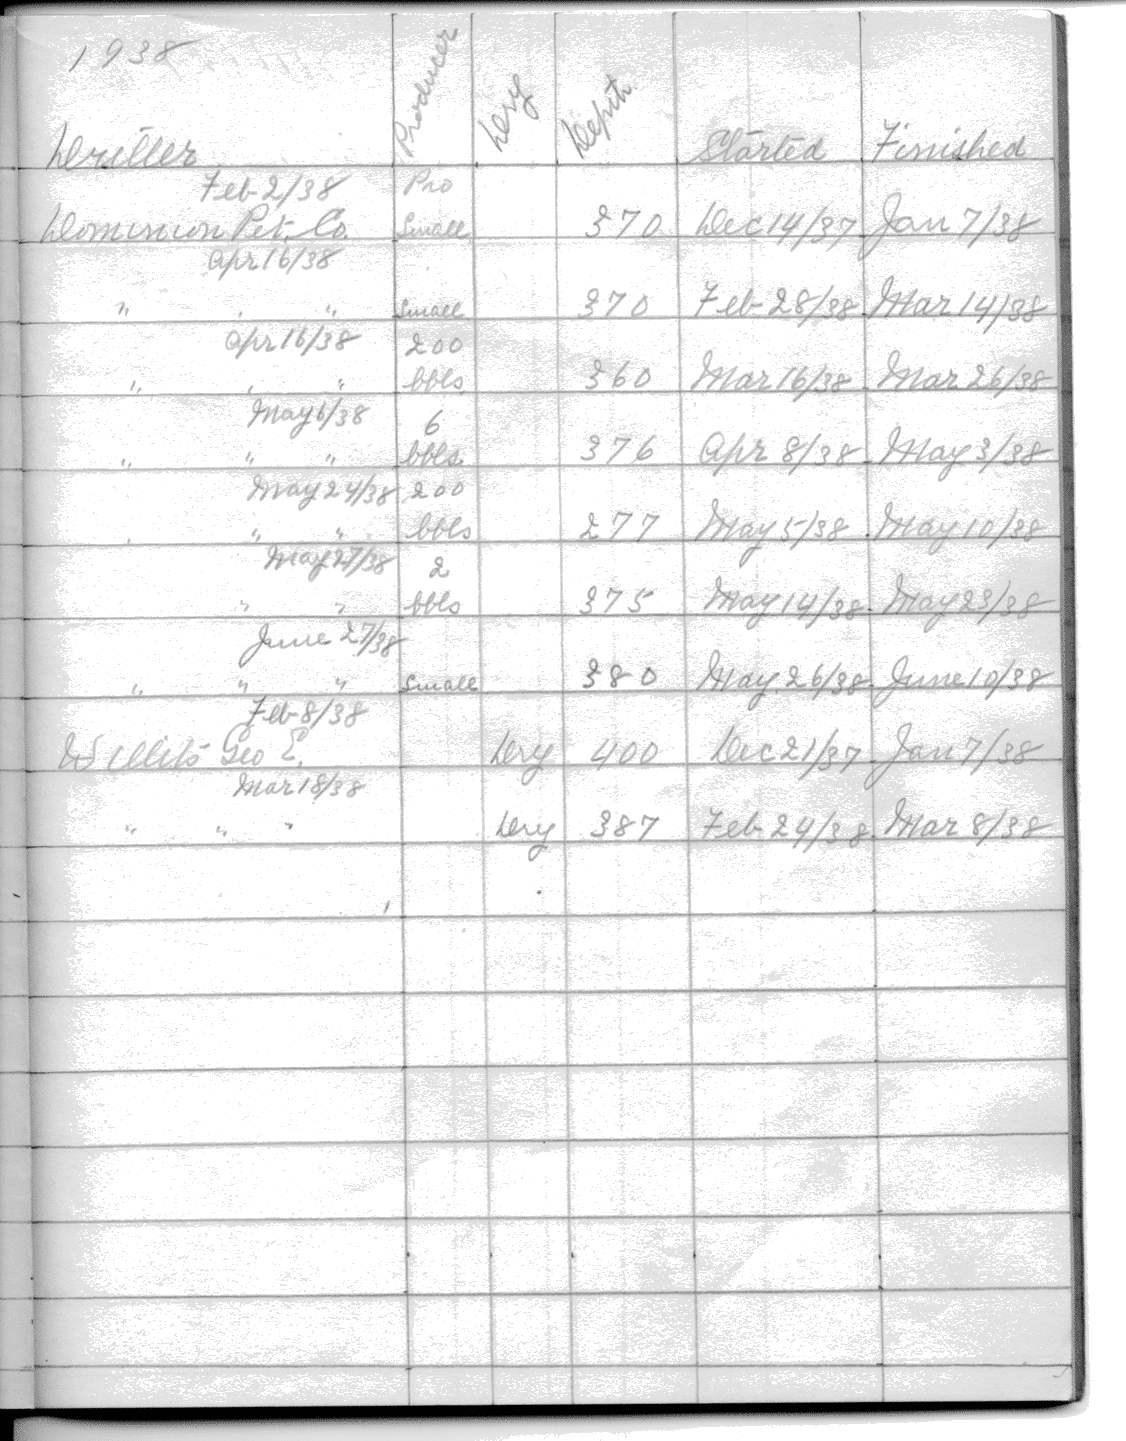 1938
Driller Producer Dry Depth Started Finished
Feb 2/38 Pro
Dominion Pet. Co. Small 370 Dec 14/37 Jan 7/38
Apr 16/38
" " " Small 370 Feb 28/38 Mar 14/38
Apr 16/38 200
" " " bbls 360 Mar 16/38 Mar 26/38
May 6/38 6
" " " bbls 376 Apr 8/38 May 3/38
May 24/38 200
" " " bbls 277 May 5/38 May 10/38
May 27/38 2
" " bbls 375 May 14/38 May 23/38
June 27/38
" " " Small 380 May 26/38 June 10/38
Feb 8/38
Geo E. Dry 400 Dec 21/37 Jan 7/38
Mar 18/38
" " " Dry 387 Feb 24/38 Mar 8/38